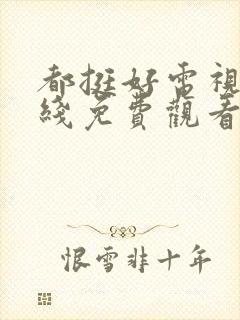 都挺好電視
綫免費觀看
恨雪非十年